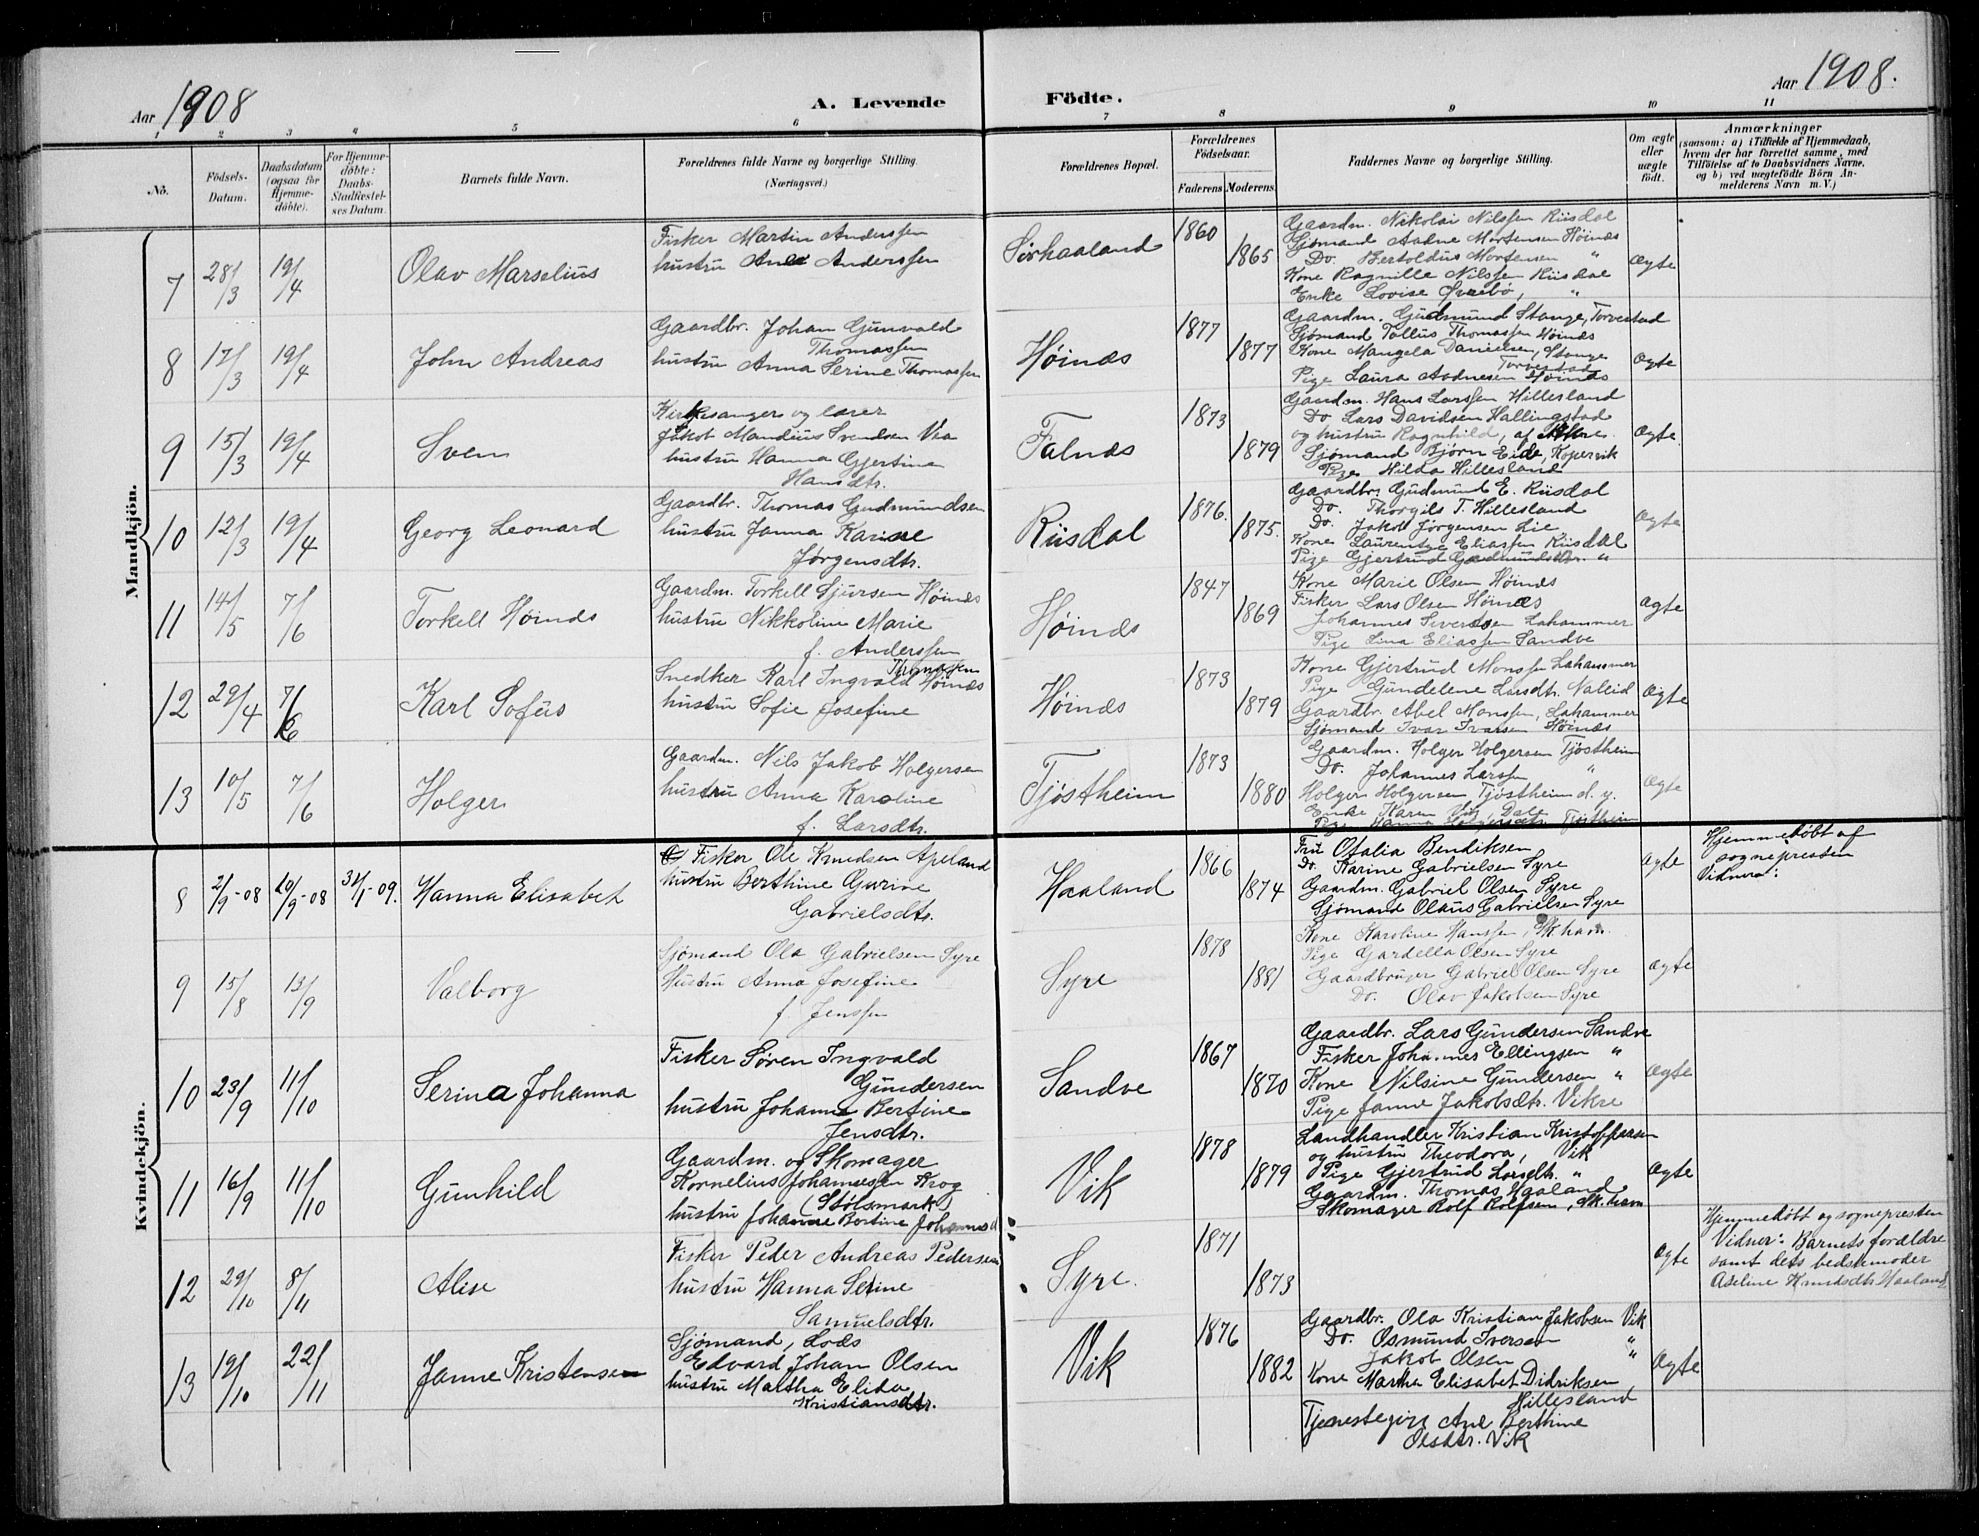 Aar 1908
A. Levende
Födte.
Aar 1908.
1 2 3 4 5 6 7 8 9 10 11
No.
Födsels-Datum.
Daabsdatum (ogsaa for Hjemme-döbte).
For Hjemme-döbte: Daabs-Stadfæstel-ses Datum.
Barnets fulde Navn.
Forældrenes fulde Navne og borgerlige Stilling.
(Næringsvei.)
Forældrenes Bopæl.
Forældrenes Födselsaar.
Faderens Moderens.
Faddernes Navne og borgerlige Stilling.
Om ægte eller uægte født.
Anmærkninger
(saasom: a) i Tilfælde af Hjemmedaab, hvem der har forrettet samme, med Tilföielse af to Daabsvidners Navne, og b) ved uægtefödte Börn An-melderens Navn m. V.)
Mandkjön.
7 28/3 19/4 Olav Marselius
Fisker Martin Anderssen
hustru Ane Anderssen
Sørhaaland 1860 1865
Gaardm. Nikolai Nilssen Riisdal
Sjømand Aadne Mortensen Høinæs
Do. Bertoldus Mortensen "
Kone Ragnille Nilssen Riisdal
Enke Lovise Ørebø, "
Ægte
8 17/3 19/4 John Andreas
Gaardbr. Johan Gunvald
Thomassen
hustru Anna Serine Thomassen
Høinæs 1877 1877
Gaardm. Gudmund Stange, Torvestad
Sjømand Tollus Thomassen Høinæs
Kone Mangela Danielsen, Stange
Torvestad
Pige Laura Aadnesen Høinæs
Ægte
9 15/3 19/4 Sven
Kirkesanger og lærer
Jakob Mandius Svendsen Vea
hustru Hanna Gjertine
Hansdtr.
Falnæs 1873 1879
Gaardm. Hans Larssen Hillesland
Do Lars Davidsen Hallingstad
og hustru Ragnhild, af
Sjømand Bjørn Eide, Kopervik
Pige Hilda Hillesland
Ægte.
10 12/3 19/4 Georg Leonard
Gaardbr. Thomas Gudmundsen
hustru Janna Karine
Jørgensdtr.
Riisdal 1876. 1875.
Gaardbr. Gudmund E. Riisdal
Do. Thorgils T. Hillesland
Do. Jakob Jørgensen Lie
Kone Laurentze Eliassen Riisdal
Pige Gjertrud Gudmundsdtr. "
Ægte
11 14/5 7/6 Torkell Høinæs
Gaardm. Torkell Sjursen Høinæs
hustru Nikkoline Marie
f. Anderssen
Høinæs 1847 1869
Kone Marie Olsen Høinæs
Fisker Lars Olsen Høinæs
Johannes Sivertsen Lahammer
Pige Lina Eliassen Sandve
Ægte
12 29/4 7/6 Karl Sofus
Snedker Karl Ingvald Thomassen Høinæs
hustru Sofie Josefine
Høinæs 1873 1879
Kone Gjertrud Monssen Lahammer
Pige Gundelene Larsdtr. Nalleid
Gaardbr. Abel Monssen, Lahammer
Sjømand Ivar Ivarsen Høinæs
Ægte
13 10/5 7/6 Holger
Gaardm. Nils Jakob Holgersen
hustru Anna Karoline
f. Larsdtr.
Tjøstheim 1873 1880
Gaardm. Holger Holgersen Tjøstheim
Do. Johannes Larssen "
Holger Holgersen Tjøstheim d. y.
Enke Karen Dale
Pige Hanna Holgersdtr. Tjøstheim
Ægte
Kvindekjön.
8 2/9-08 20/9-08 31/1-09. Hanna Elisabet
Fisker Ole Knudsen Apeland
hustru Berthine Gurine
Gabrielsdtr.
Haaland 1866 1874
Fru Otalia Bendiksen
Do. Karine Gabrielsen Syre
Gaardm. Gabriel Olsen Syre
Sjømand Olaus Gabrielsen Syre
Ægte
Hjemmedøbt af
sognepresten
Vidner:
9 15/8 13/9 Valborg
Sjømand Ola Gabrielsen Syre
Hustru Anna Josefine
f. Jenssen
Syre 1878 1881
Kone Karoline Hanssen, Sk.havn.
Pige Gardella Olsen Syre
Gaardbruger Gabriel Olsen Syre
Do. Olav Jakobsen Syre
Ægte
10 23/9 11/10 Serina Johanna
Fisker Søren Ingvald
Gundersen
hustru Johanne Bertine
Jensdtr.
Sandve 1867 1870
Gaardbr. Lars Gundersen Sandve
Fisker Johannes Ellingsen "
Kone Nilsine Gundersen "
Pige Janne Jakobsdtr. Vikre
Ægte
11 16/9 11/10 Gunhild
Gaardm. og Skomager
Kornelius Johannesen Krog
(Stølsmark)
hustru Johanne Bertine Johannesd
Vik 1878 1879
Landhandler Kristian Kristoffersen
og hustru Theodora, Vik
Pige Gjertrud Larsdtr. "
Gaardm. Thomas Haaland
Skomager Rolf Rolfsen, Sk.havn
Ægte
12 29/10 8/11 Alise
Fisker Peder Andreas Pedersen
hustru Hanna Serine
Samuelsdtr.
Syre. 1871 1873
Ægte
Hjemmedøbt og sognepresten
Vidner: Barnets forældre
samt dets bedstemoder
Aseline Knudsdtr. Haaland
13 19/10 22/11 Janne Kristensen
Sjømand, Lods
Edvard Johan Olsen
hustru Martha Elida
Kristiansdtr.
Vik 1876 1882
Gaardbr. Ola Kristian Jakobsen Vik
Do. Osmund Iversen "
Jakob Olsen "
Kone Martha Elisabet Didriksen
Hillesland
Tjenestepige Ane Berthine
Olsdtr. Vik
Ægte